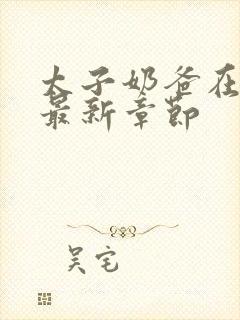 太子奶爸在
最新章節
吴宅